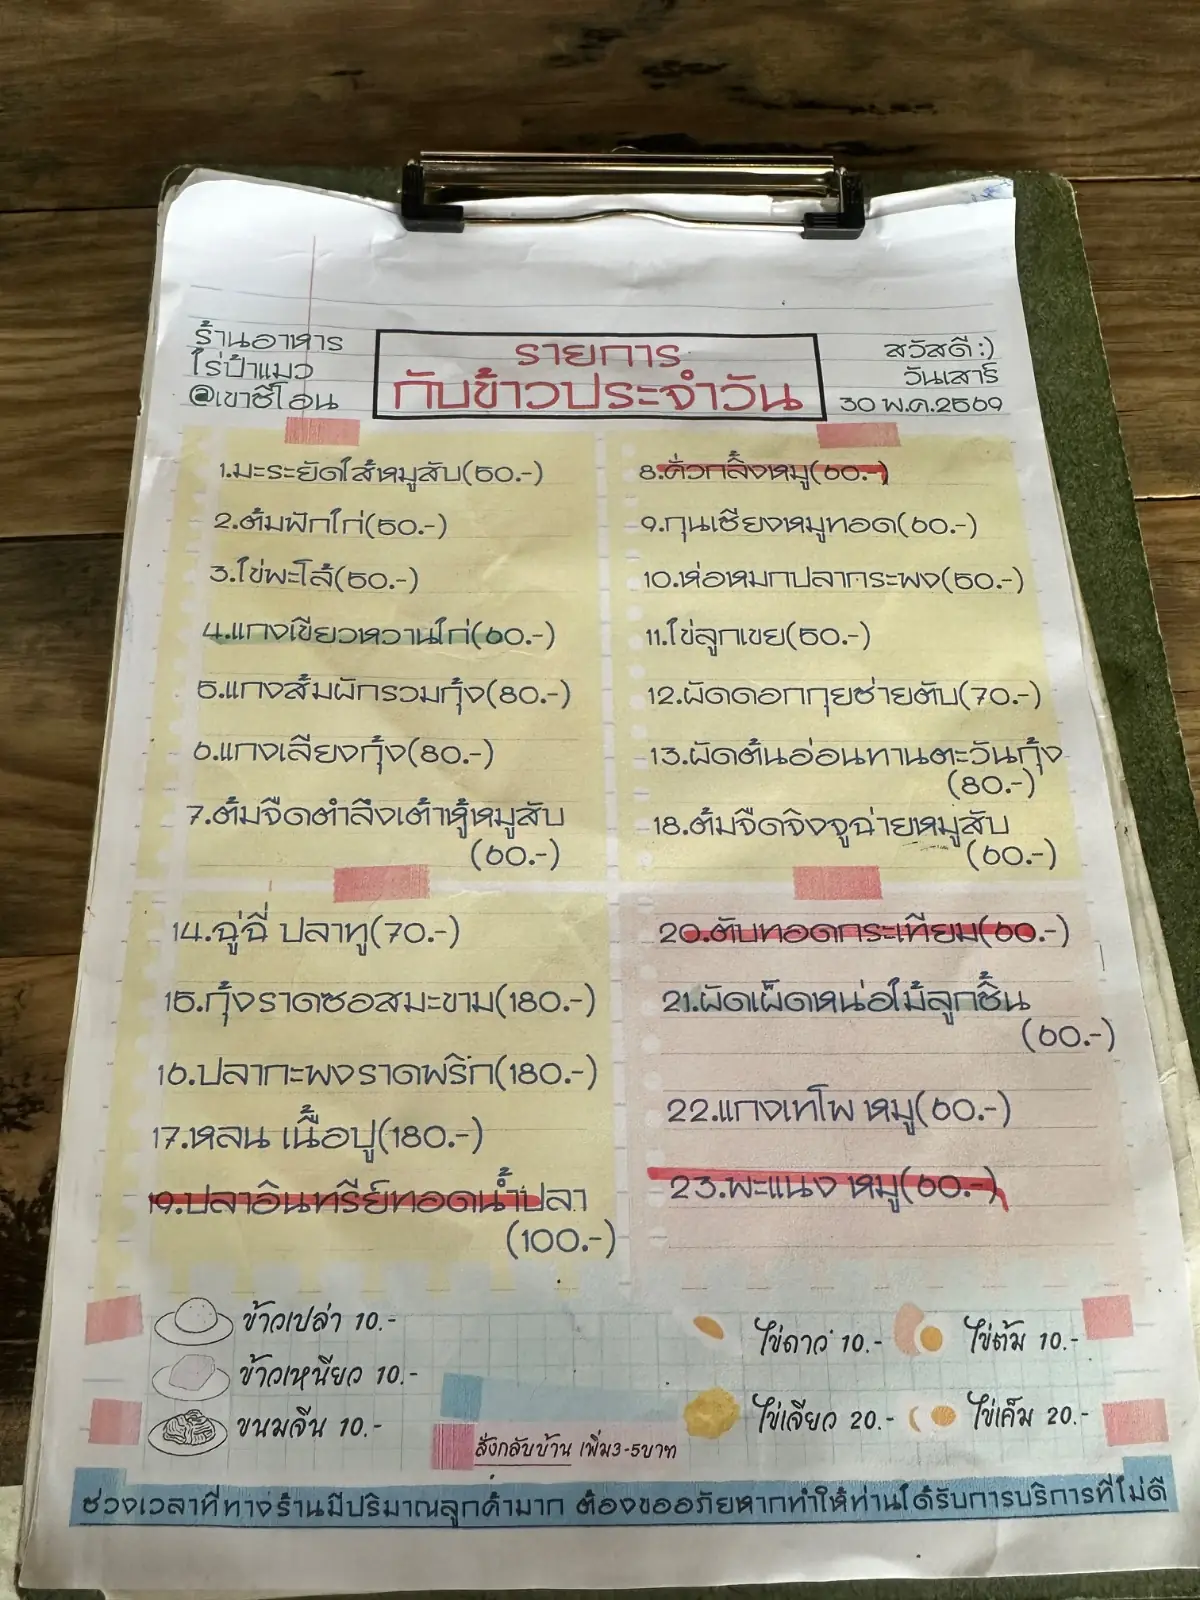 ร้านอาหาร
ไร่ป้าแมว
@เขาชีโอน
รายการ
กับข้าวประจำวัน
สวัสดี :)
วันเสาร์
30 พ.ค.2569
1.มะระยัดใส้หมูสับ(50.-)
2.ต้มฟักไก่(50.-)
3.ไข่พะโล้(50.-)
4.แกงเขียวหวานไก่(60.-)
5.แกงส้มผักรวมกุ้ง(80.-)
6.แกงเลียงกุ้ง(80.-)
7.ต้มจืดตำลึงเต้าหู้หมูสับ
(60.-)
8.คั่วกลิ้งหมู(60.-)
9.กุนเชียงหมูทอด(60.-)
10.ห่อหมกปลากระพง(50.-)
11.ไข่ลูกเขย(50.-)
12.ผัดดอกกุยช่ายตับ(70.-)
13.ผัดต้นอ่อนทานตะวันกุ้ง
(80.-)
18.ต้มจืดจิงจูฉ่ายหมูสับ
(60.-)
14.ฉู่ฉี่ ปลาทู(70.-)
15.กุ้งราดซอสมะขาม(180.-)
16.ปลากะพงราดพริก(180.-)
17.หลน เนื้อปู(180.-)
19.ปลาอินทรีย์ทอดน้ำปลา
(100.-)
20.ตับทอดกระเทียม(60.-)
21.ผัดเผ็ดหน่อไม้ลูกชิ้น
(60.-)
22.แกงเทโพ หมู(60.-)
23.พะแนง หมู(60.-)
ข้าวเปล่า 10.-
ข้าวเหนียว 10.-
ขนมจีน 10.-
ไข่ดาว 10.-
ไข่ต้ม 10.-
ไข่เจียว 20.-
ไข่เค็ม 20.-
สั่งกลับบ้าน เพิ่ม3-5บาท
ช่วงเวลาที่ทางร้านมีปริมาณลูกค้ามาก ต้องขออภัยหากทำให้ท่านได้รับการบริการที่ไม่ดี